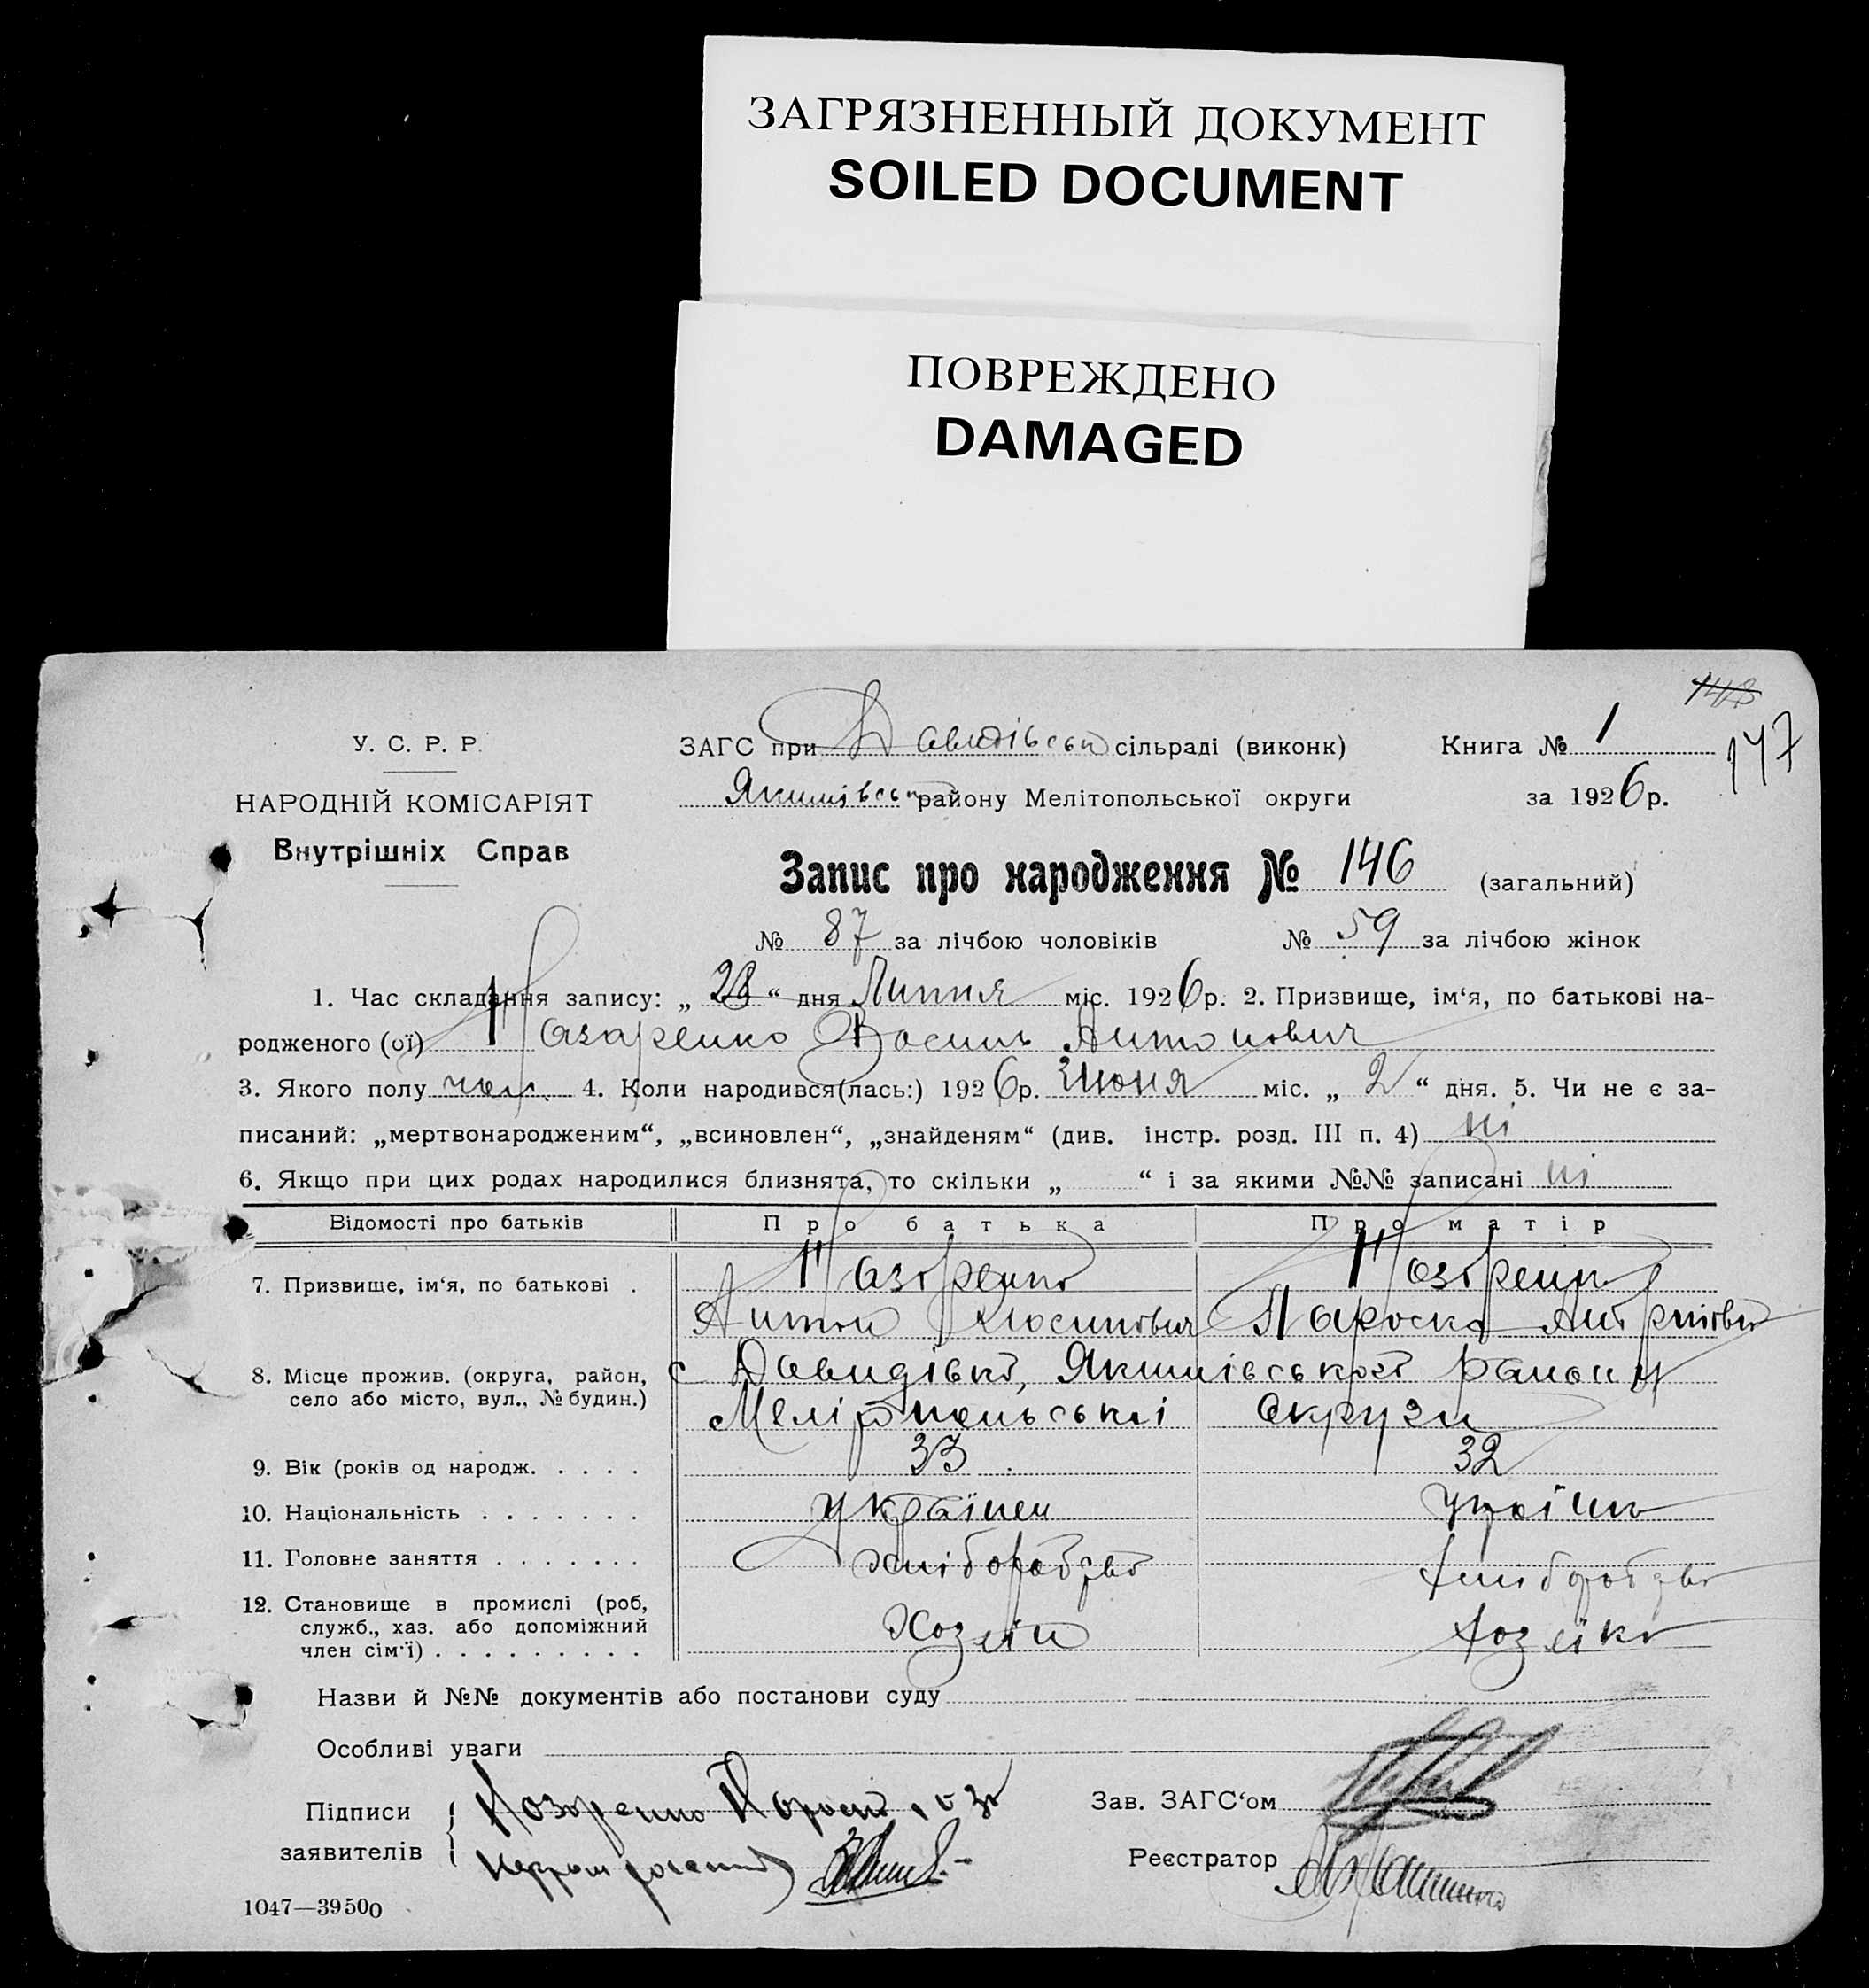 ЗАГРЯЗНЕННЫЙ ДОКУМЕНТ
SOILED DOCUMENT
ПОВРЕЖДЕНО
DAMAGED
148
147
У. С. Р. Р.
НАРОДНІЙ КОМІСАРІЯТ
Внутрішніх Справ
ЗАГС при Давидівськ сільраді (виконк) Книга № 1
Якимівськ району Мелітопольської округи за 1926 р.
Запис про народження № 146 (загальний)
№ 87 за лічбою чоловіків № 59 за лічбою жінок
1. Час складання запису: „ 23 “ дня Липня міс. 1926 р. 2. Призвище, ім‘я, по батькові на-
родженого (ої) Назаренко Василь Антонович
3. Якого полу чол. 4. Коли народився(лась:) 1926 р. Июня міс. „ 2 “ дня. 5. Чи не є за-
писаний: „мертвонародженим“, „всиновлен“, „знайденям“ (див. інстр. розд. III п. 4) ні
6. Якщо при цих родах народилися близнята, то скільки „ “ і за якими №№ записані ні
Відомості про батьків Про батька Про матір
7. Призвище, ім‘я, по батькові . Назаренко Назаренко
Антон Параска
8. Місце прожив. (округа, район, с Давидівка, Якимівського району
село або місто, вул., № будин.) Мелітопольської округи
9. Вік (років од народж. . . . . 33 32
10. Національність . . . . . . . українец україн
11. Головне заняття . . . . . . . хліборобство хліборобство
12. Становище в промислі (роб,
служб., хаз. або допоміжний Хозяїн хозяїка
член сім‘ї) . . . . . . . . .
Назви й №№ документів або постанови суду
Особливі уваги
Підписи Назаренко Зав. ЗАГС‘ом
заявителів Реєстратор
1047—39500